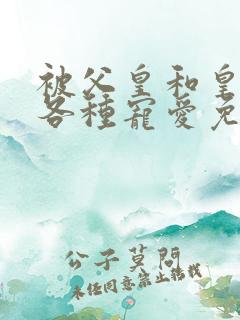 被父皇和皇
各種寵愛免
公子莫問
未任同意禁止轉載